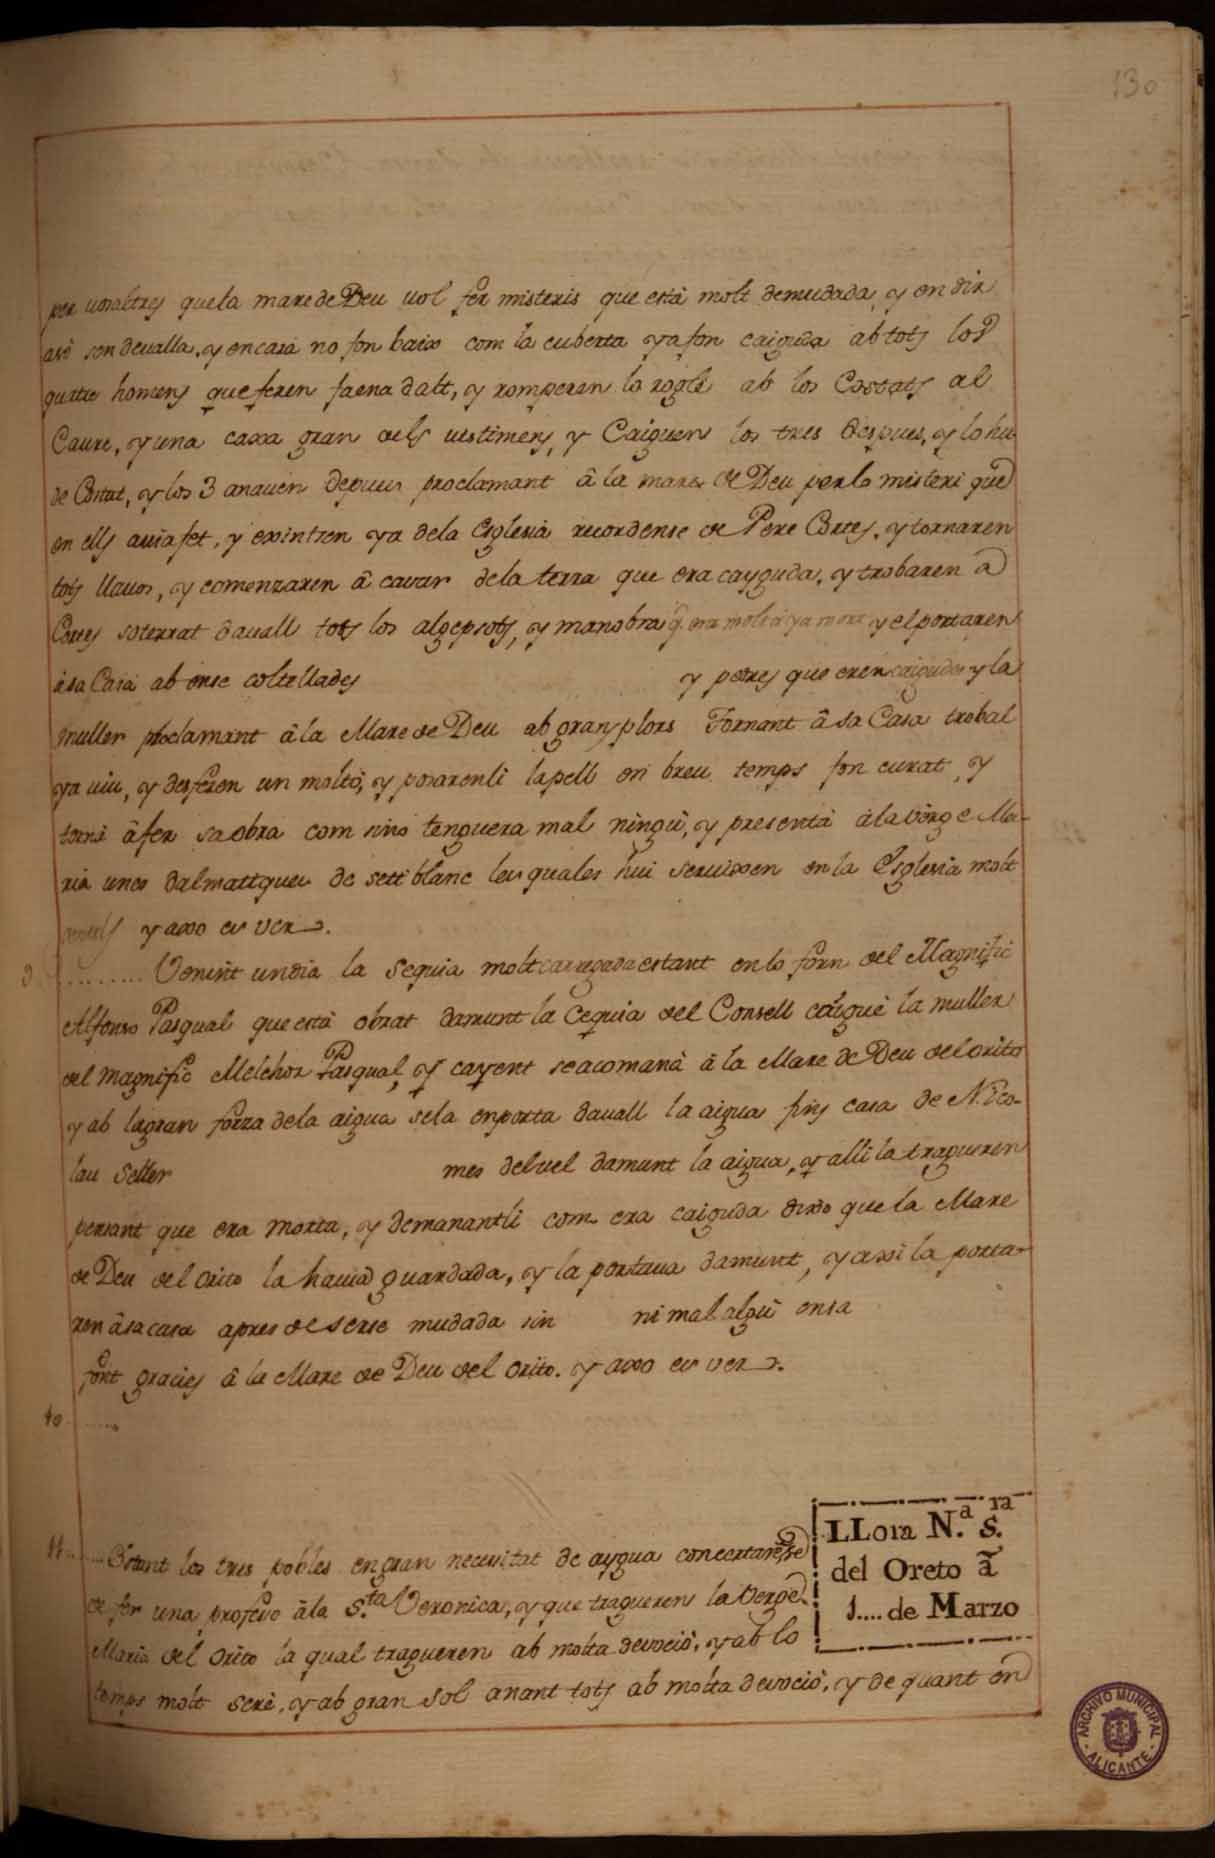 130
per vosaltres que la mare de Deu vol fer misteris que està molt demudada, y en dir
asò son devalla, y encara no fon baix com la cuberta ya fon caiguda ab tots los
quatre homens que feren faena dalt, y romperen lo rogle ab los Costats al
Caure, y una caxa gran dels vestimens, y Caiguen los tres despues, y lo hu
de Costat, y los 3 anaven depuu proclamant â la mare de Deu per lo misteri que
en ells avia fet, y exintsen ya dela Esglesia recordense de Pere Cortes, y tornaren
tots llavos, y comenzaren â cavar dela terra que era cayguda, y trobaren a
Cortes soterrat davall tots los algepsots, y manobra q. era molta ya mort y el portaren
à sa Casa ab onse coltellades y pedres que eren caigudes y la
muller proclamant â la Mare de Deu ab grans plors Tornant â sa Casa trobal
ya viu, y desferen un moltó, y posarenli la pell en breu temps fon curat, y
torna â fer sa obra com si no tenguera mal ningù, y presentà à la Verge Ma-
ria unes dalmatiques de seti blanc les quales hui servixen en la Esglesia molt
y axo es ver.
9 ........ Venint un dia la Sequia molt carregada estant en lo forn del Magnific
Alfonso Pasqual que està obrat damunt la Cequia del Consell caigué la muller
del Magnific Melchor Pasqual, y cayent se acomanà â la Mare de Deu del Orito
y ab la gran forza dela aigua sela enporta davall la aigua fins casa de N. Eco-
lau Seller mes del vel damunt la aigua, y alli la tragueren
pensant que era morta, y demanantli com era caiguda dixo que la Mare
de Deu del Orito la havia guardada, y la portava damunt, y axi la porta-
ren â sa casa apres de serse mudada sin ni mal algù en sa
font gracies â la Mare de Deu del Orito. y axo es ver.
10 ......
11 ...... Estant los tres pobles en gran necesitat de aygua concertarense
de fer una profeso âla S.ta Veronica, y que tragueren la Verge
Maria del Orito la qual tragueren ab molta devociò, y ab lo
temps molt serè, y ab gran sol anant tots ab molta devociò, y de quant en
LLora N.a S.ra
del Oreto ã
1.... de Marzo
ARCHIVO MUNICIPAL
ALICANTE